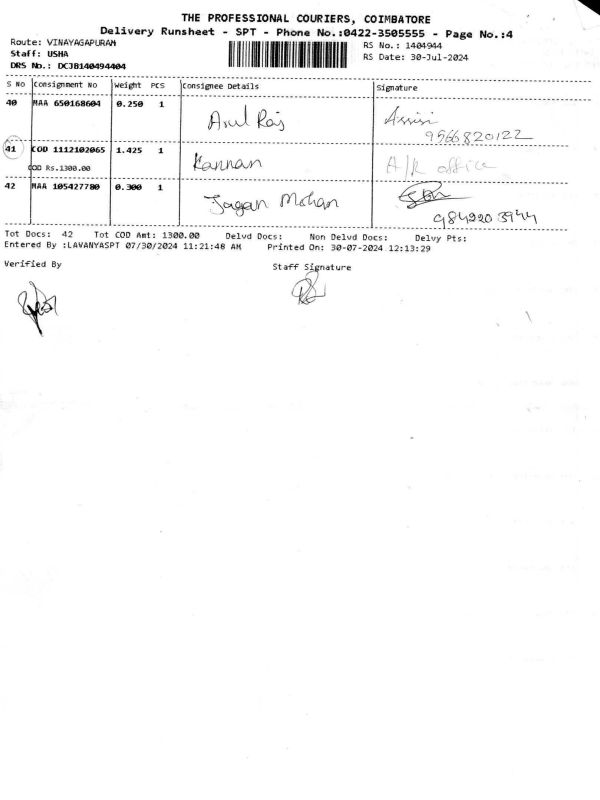 THE PROFESSIONAL COURIERS, COIMBATORE
Delivery Runsheet - SPT - Phone No.:0422-3505555 - Page No.:4
Route: VINAYAGAPURAM
Staff: USHA
DRS No.: DCJB140494404
RS No.: 1404944
RS Date: 30-Jul-2024
S NO Consignment No Weight PCS Consignee Details Signature
40 MAA 650168604 0.250 1 Arul Raj Assisi
9566820122
41 COD 1112102065 1.425 1 Kannan A/R office
COD Rs.1300.00
42 MAA 105427780 0.300 1 Jagan Mohan
9842203944
Tot Docs: 42 Tot COD Amt: 1300.00 Delvd Docs: Non Delvd Docs: Delvy Pts:
Entered By :LAVANYASPT 07/30/2024 11:21:48 AM Printed On: 30-07-2024 12:13:29
Verified By Staff Signature